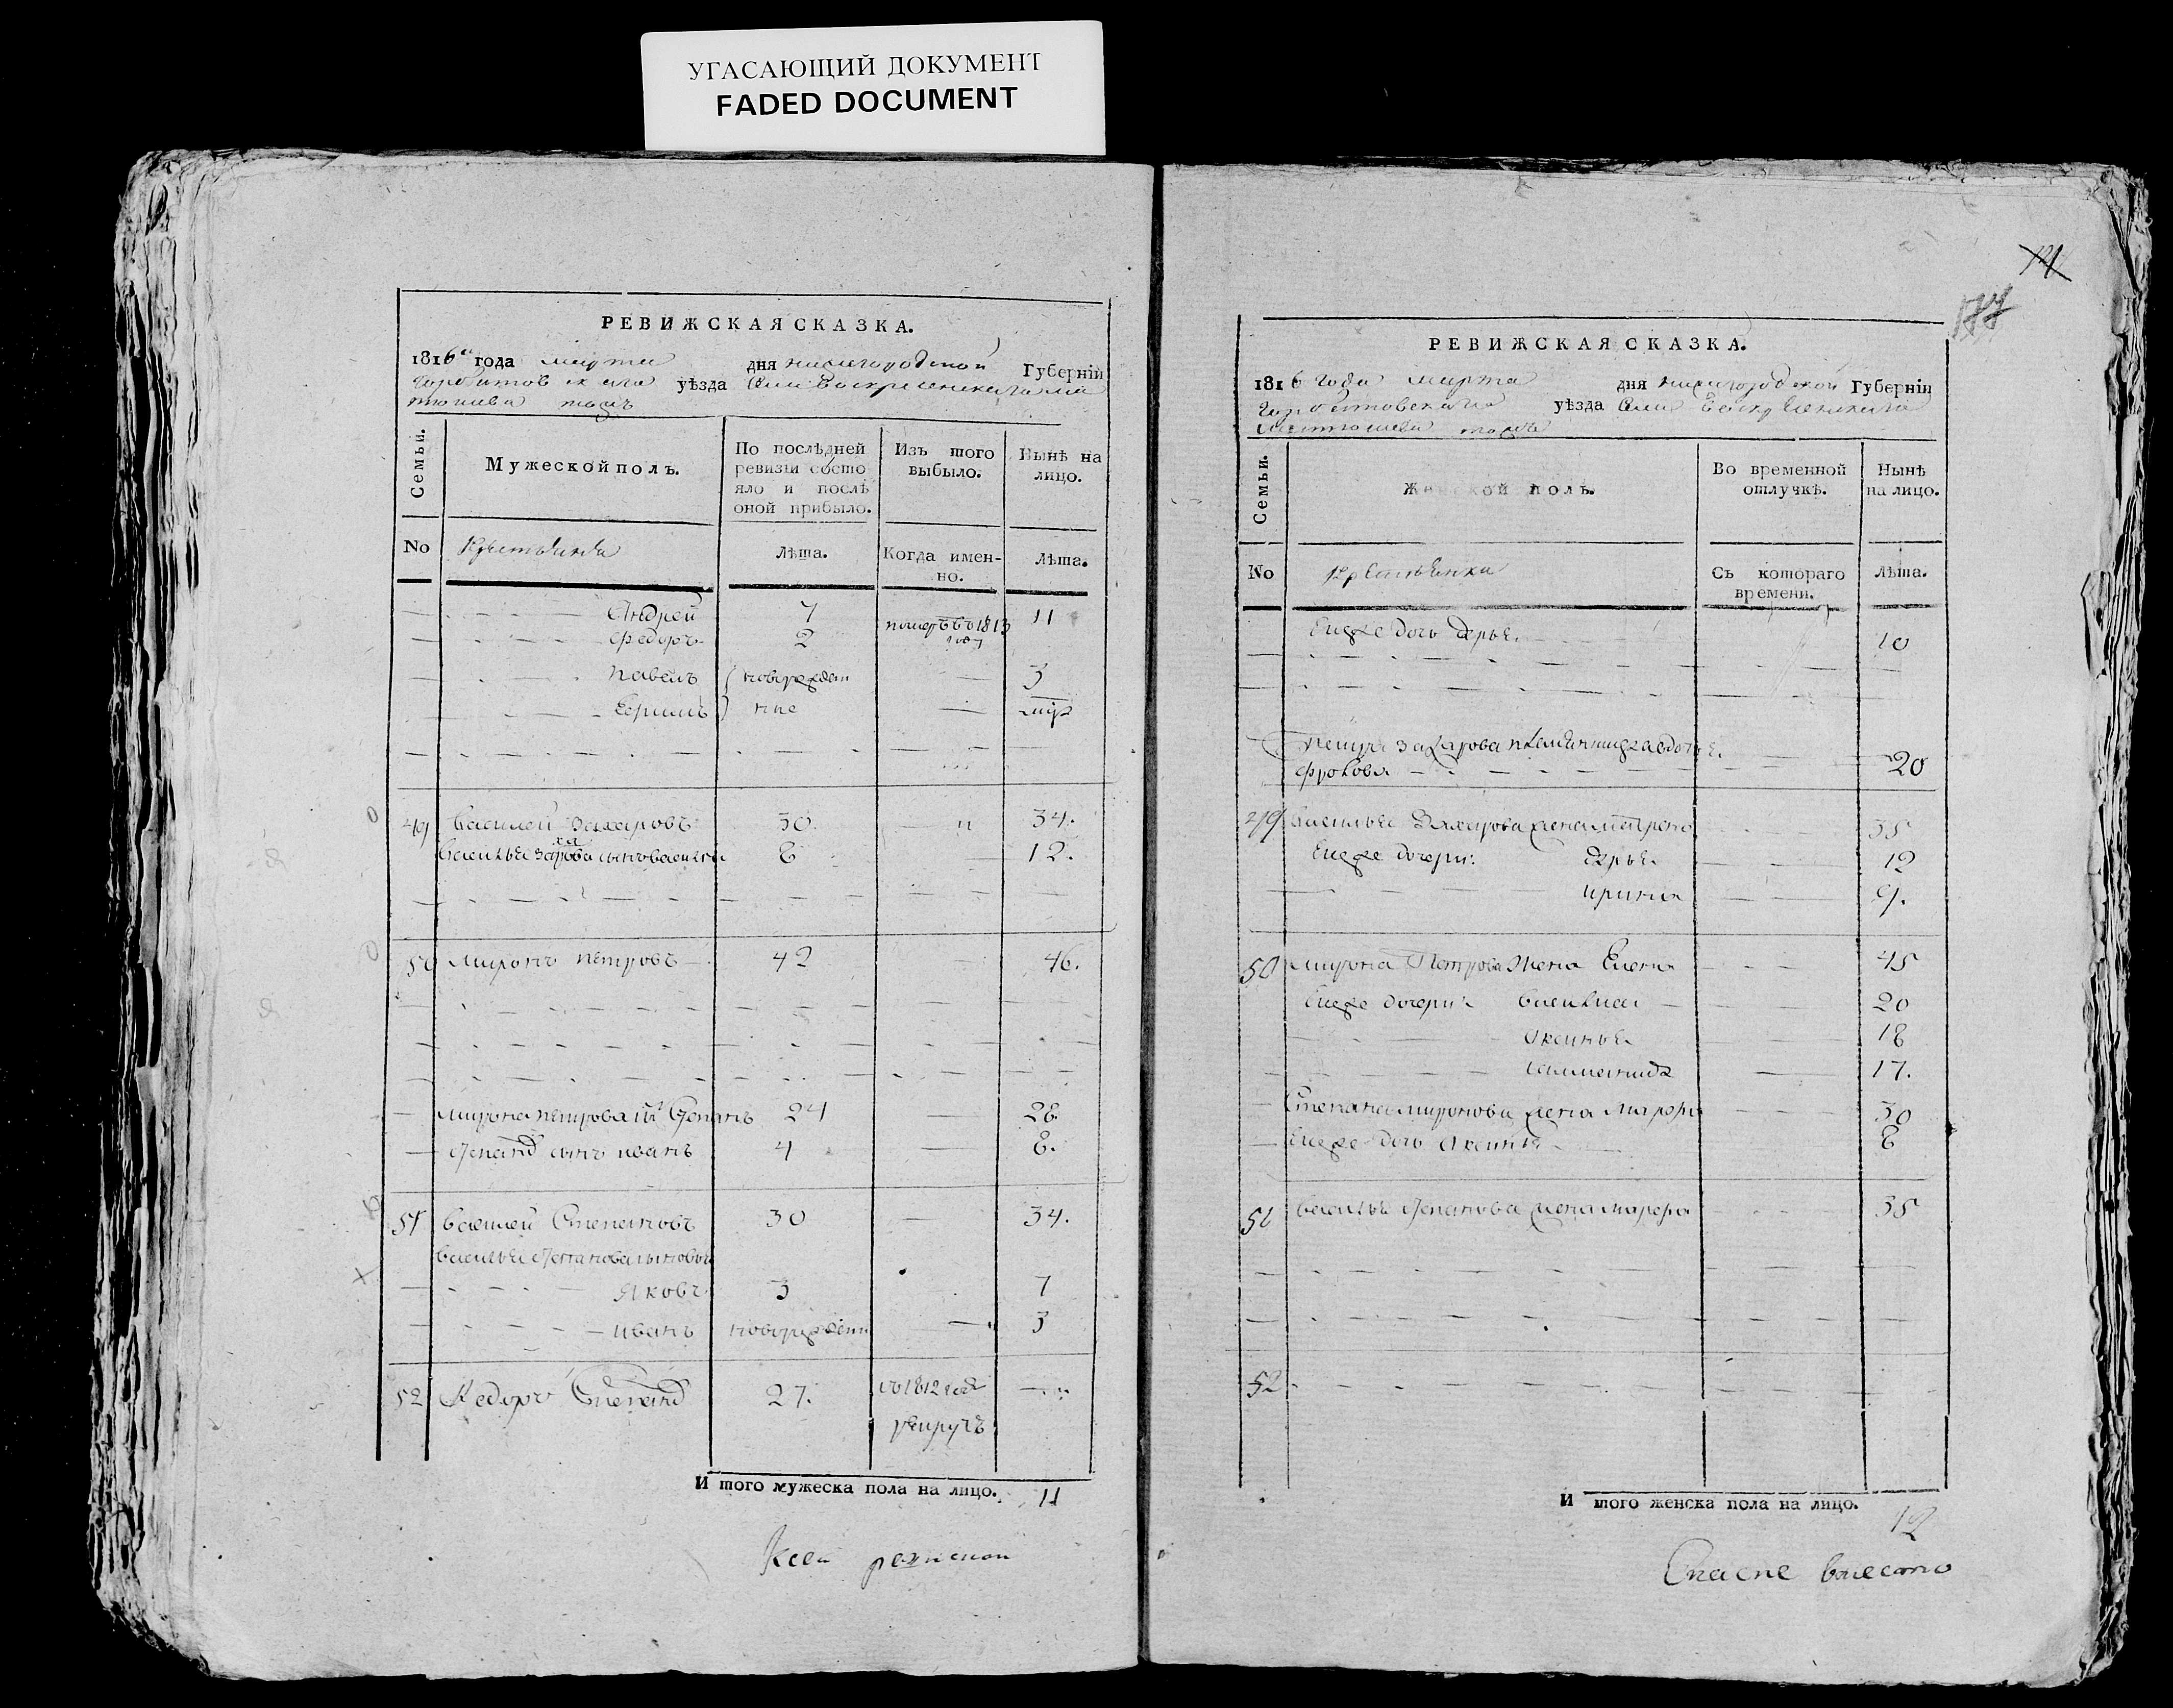 УГАСАЮЩИЙ ДОКУМЕНТ
FADED DOCUMENT
РЕВИЖСКАЯ СКАЗКА.
1816 года марта дня нижегородской Губерніи
уѣзда Села Воскресенскаго
Семьи.
Мужеской полъ.
По послѣдней ревизіи состояло и послѣ оной прибыло.
Изъ того выбыло.
Нынѣ на лицо.
No крестьянѣ
Лѣта.
Когда именно.
Лѣта.
Андрей 7 11
Федоръ 2 померъ въ 1813 году
Павелъ новорожден 3
ные
49 Василей Захаровъ 30 34.
Василья Захарова сынъ Василей 8 12.
50 Миронъ Петровъ 42 46.
Мирона Петрова Степанъ 24 28
сынъ иванъ 4 8.
51 Василей Степановъ 30 34.
Василья Степанова сыновья
Яковъ 3 7
иванъ новорожденъ 3
52 Федоръ 27. въ 1812 году
рекрутъ
Итого мужеска пола на лицо. 11
Ксей
121
177
РЕВИЖСКАЯ СКАЗКА.
1816 года марта дня нижегородской Губерніи
Горбатовскаго уѣзда Села
Семьи.
Женской полъ.
Во временной отлучкѣ.
Нынѣ на лицо.
No
Съ котораго времени.
Лѣта.
Ево же дочь Дарья 10
Захарова
20
49 Василья Захарова жена Матрена 35
Ево же дочери Дарья 12
ирина 9.
50 Мирона Петрова жена Елена 45
Ево же дочери Василиса 20
Аксинья 18
17.
Степана миронова жена Марфа 30
Ево же дочь Аксинья 8
51 Василья Степанова жена марфа 35
52
Итого женска пола на лицо.
12